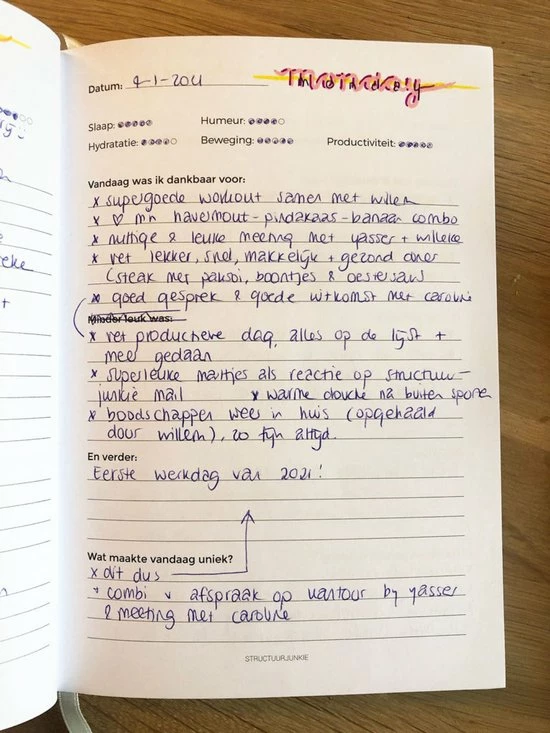 Datum: 4-1-2021 monday
Slaap:
Humeur:
Hydratatie:
Beweging:
Productiviteit:
Vandaag was ik dankbaar voor:
x supergoede workout samen met willem
x ♡ mn havermout-pindakaas-banaan combo
x nuttige & leuke meeting met yasser + willeke
x vet lekker, snel, makkelijk + gezond diner
(steak met paksoi, boontjes & oestersaus
x goed gesprek & goede uitkomst met caroline
Minder leuk was:
x vet productieve dag, alles op de lijst +
meer gedaan
x superleuke mailtjes als reactie op structuur-
junkie mail x warme douche na buiten sporten
x boodschappen weer in huis (opgehaald
door willem), zo fijn altijd.
En verder:
Eerste werkdag van 2021!
Wat maakte vandaag uniek?
x dit dus
+ combi v afspraak op kantoor bij yasser
& meeting met caroline
STRUCTUURJUNKIE